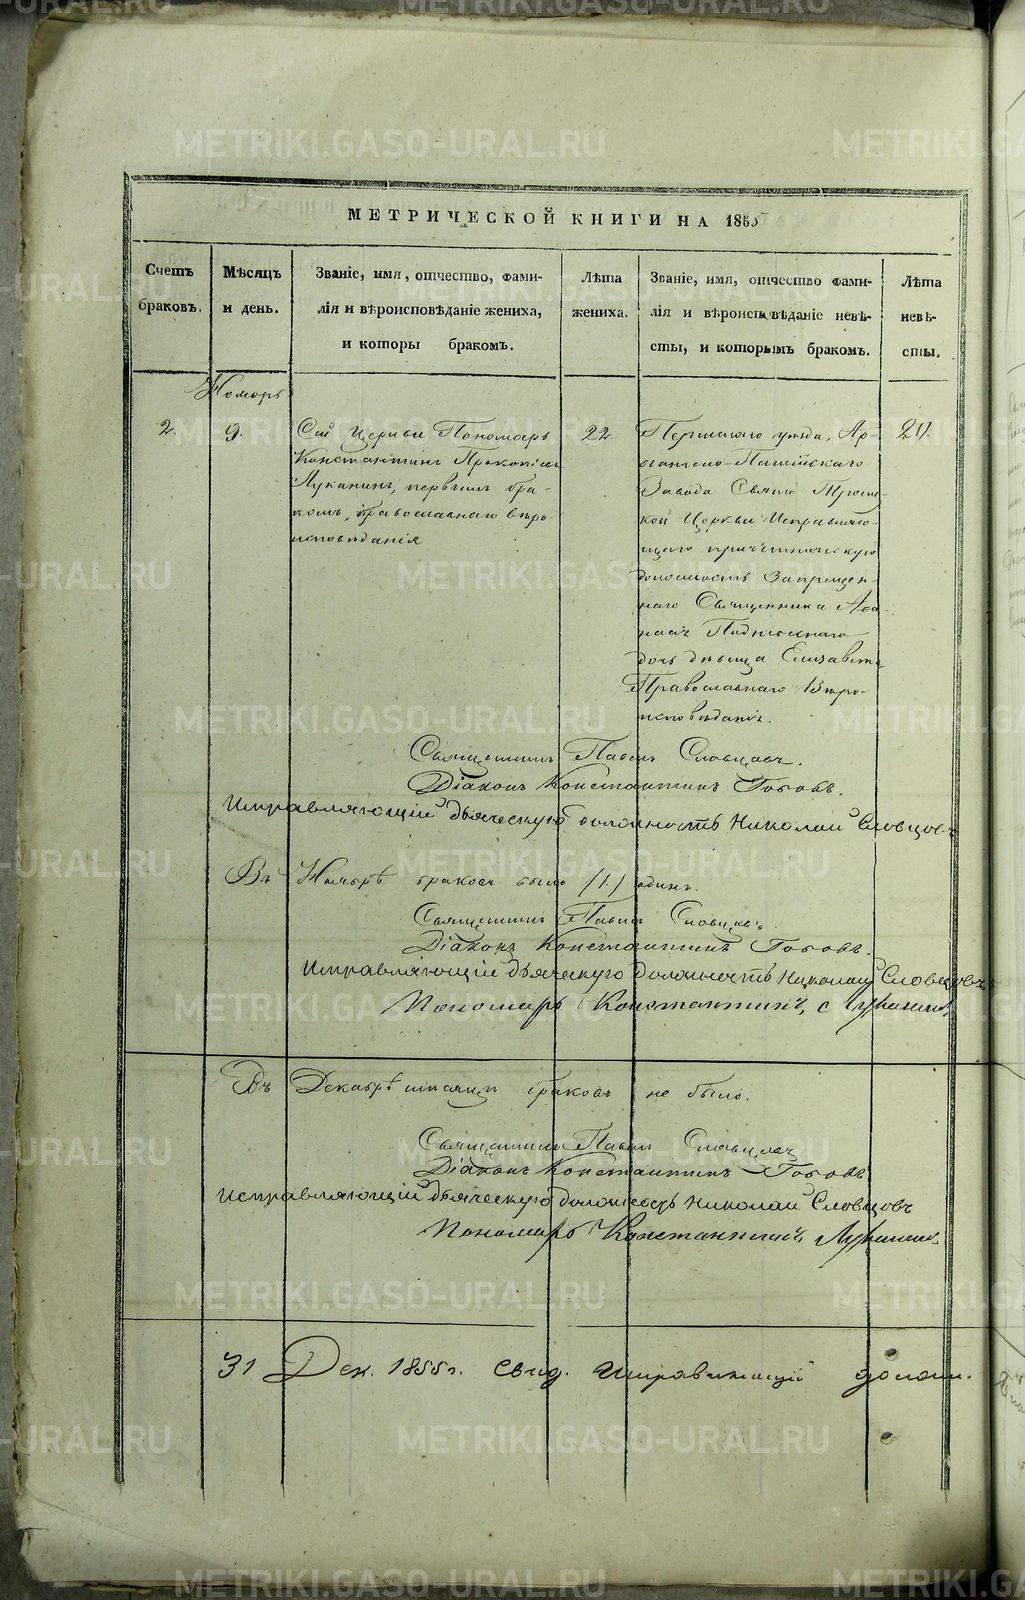 МЕТРИЧЕСКОЙ КНИГИ НА 1855
Счетъ
браковъ.
Мѣсяцъ
и день.
Званіе, имя, отчество, фами-
лія и вѣроисповѣданіе жениха,
и которы бракомъ.
Лѣта
жениха.
Званіе, имя, отчество фами-
лія и вѣроисповѣданіе невѣ-
сты, и которымъ бракомъ.
Лѣта
невѣ-
сты.
2.
9.
Сей Церкви Пономарь
Константинъ Прокопіевъ
Луканинъ, первымъ бра-
комъ, православнаго вѣро
исповѣданія
22
Пермскаго уѣзда, Ар-
хангело-Пашійскаго
Завода Свято Троиц-
кой Церкви Исправляю-
щаго причетническую
должность Запрещен-
наго Священника
дочь дѣвица Елизавета
Православнаго Вѣро-
исповѣданія.
20.
Священникъ Павелъ Словцовъ.
Діаконъ Константинъ
Исправляющій дьяческую должность Николай Словцовъ
Въ Ноябрѣ браковъ было (1) одинъ.
Священникъ Павелъ Словцовъ.
Діаконъ Константинъ
Исправляющій дьяческую должность Николай Словцовъ
Пономарь Константинъ Луканинъ
Въ Декабрѣ мѣсяцѣ браковъ не было.
Священникъ Павелъ Словцовъ
Діаконъ Константинъ
Исправляющій дьяческую должность Николай Словцовъ
Пономарь Константинъ Луканинъ
31 Дек. 1855 г. Свид. Исправляющій должн.
METRIKI.GASO-URAL.RU